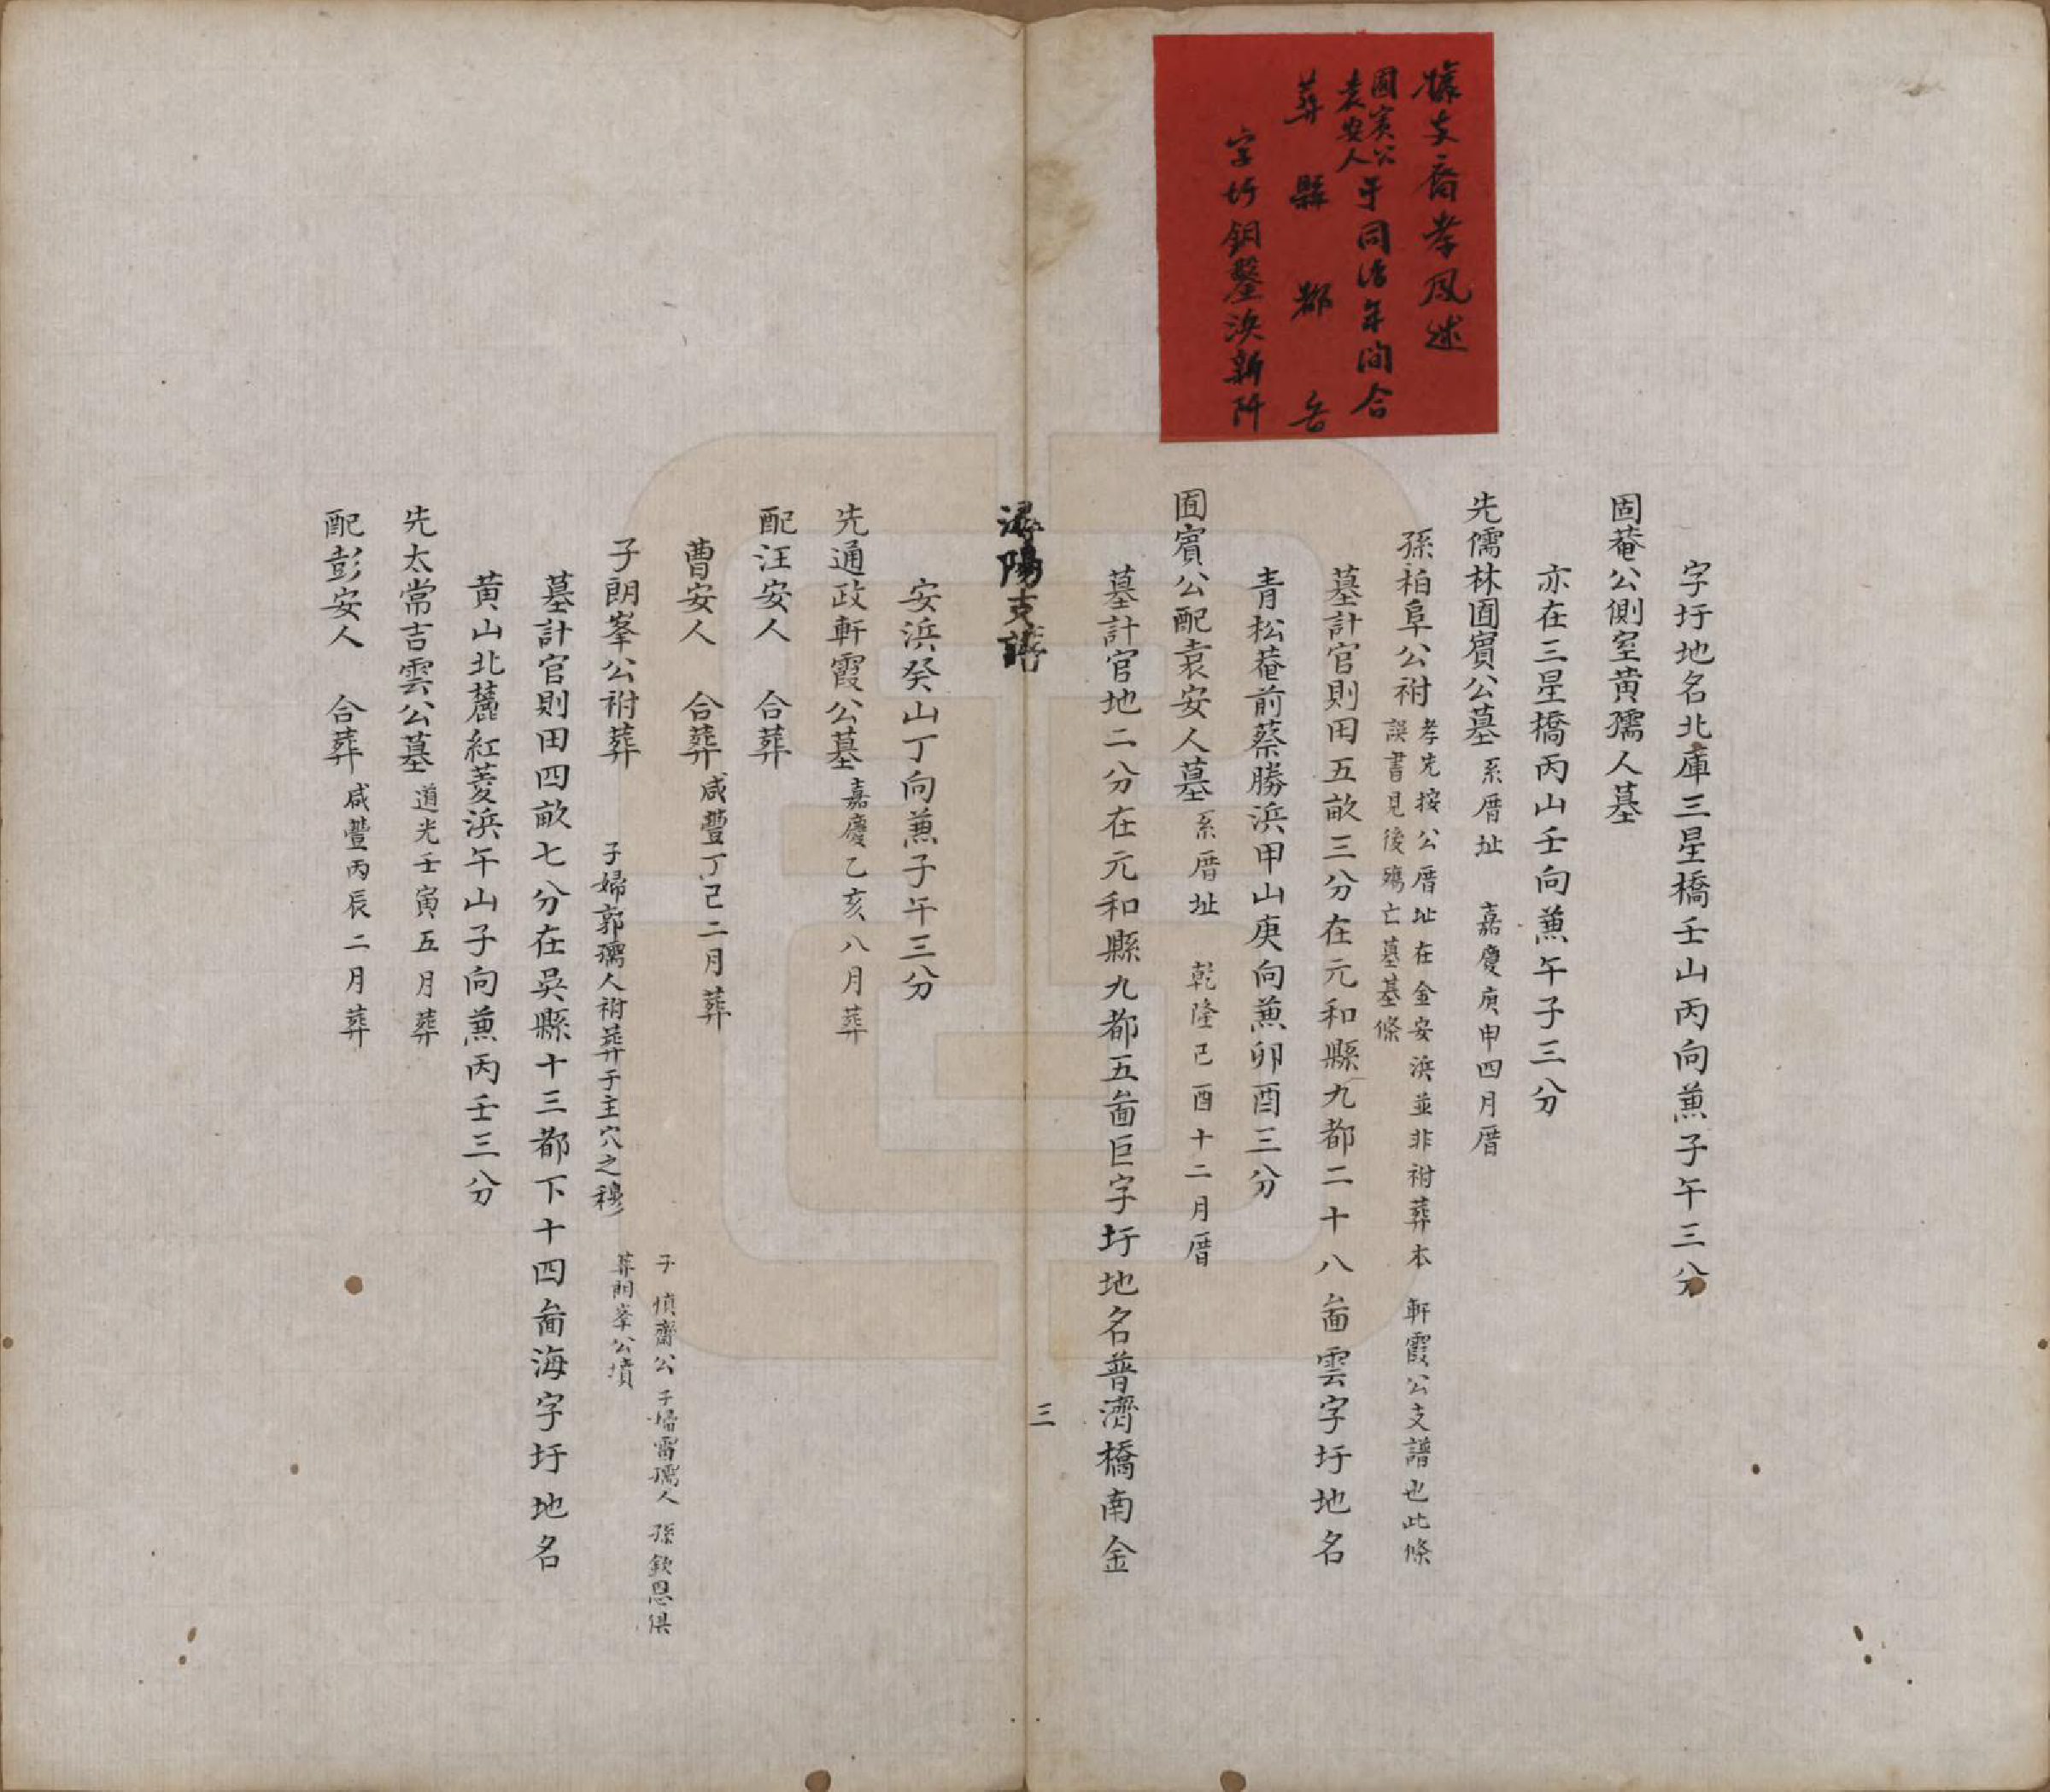 據支裔孝鳳述
圃賓公
袁安人于同治年間合
葬　縣　都　啚
字圩鈅墾浜新阡
字圩地名北庫三星橋壬山丙向兼子午三分
固菴公側室黄孺人墓
亦在三星橋丙山壬向兼午子三分
先儒林圃賔公墓系厝址　嘉慶庚申四月厝
孫柏阜公祔
孝先按公厝址在金安浜並非祔葬本　軒霞公支譜也此條
誤書見後殤亡墓基條
墓計官則田五畝三分在元和縣九都二十八啚雲字圩地名
青松菴前蔡勝浜甲山庚向兼卯酉三分
圃賔公配袁安人墓系厝址　乾隆己酉十二月厝
墓計官地二分在元和縣九都五啚巨字圩地名普濟橋南金
潯陽支譜
三
安浜癸山丁向兼子午三分
先通政軒霞公墓嘉慶乙亥八月葬
配汪安人　合葬
曹安人　合葬咸豐丁巳二月葬
子朗峯公祔葬　子婦郭孺人祔葬于主穴之穆
子慎齋公　子婦雷孺人　孫欽恩俱
葬朗峯公墳
墓計官則田四畝七分在吳縣十三都下十四啚海字圩地名
黄山北麓紅菱浜午山子向兼丙壬三分
先太常吉雲公墓道光壬寅五月葬
配彭安人　合葬咸豐丙辰二月葬